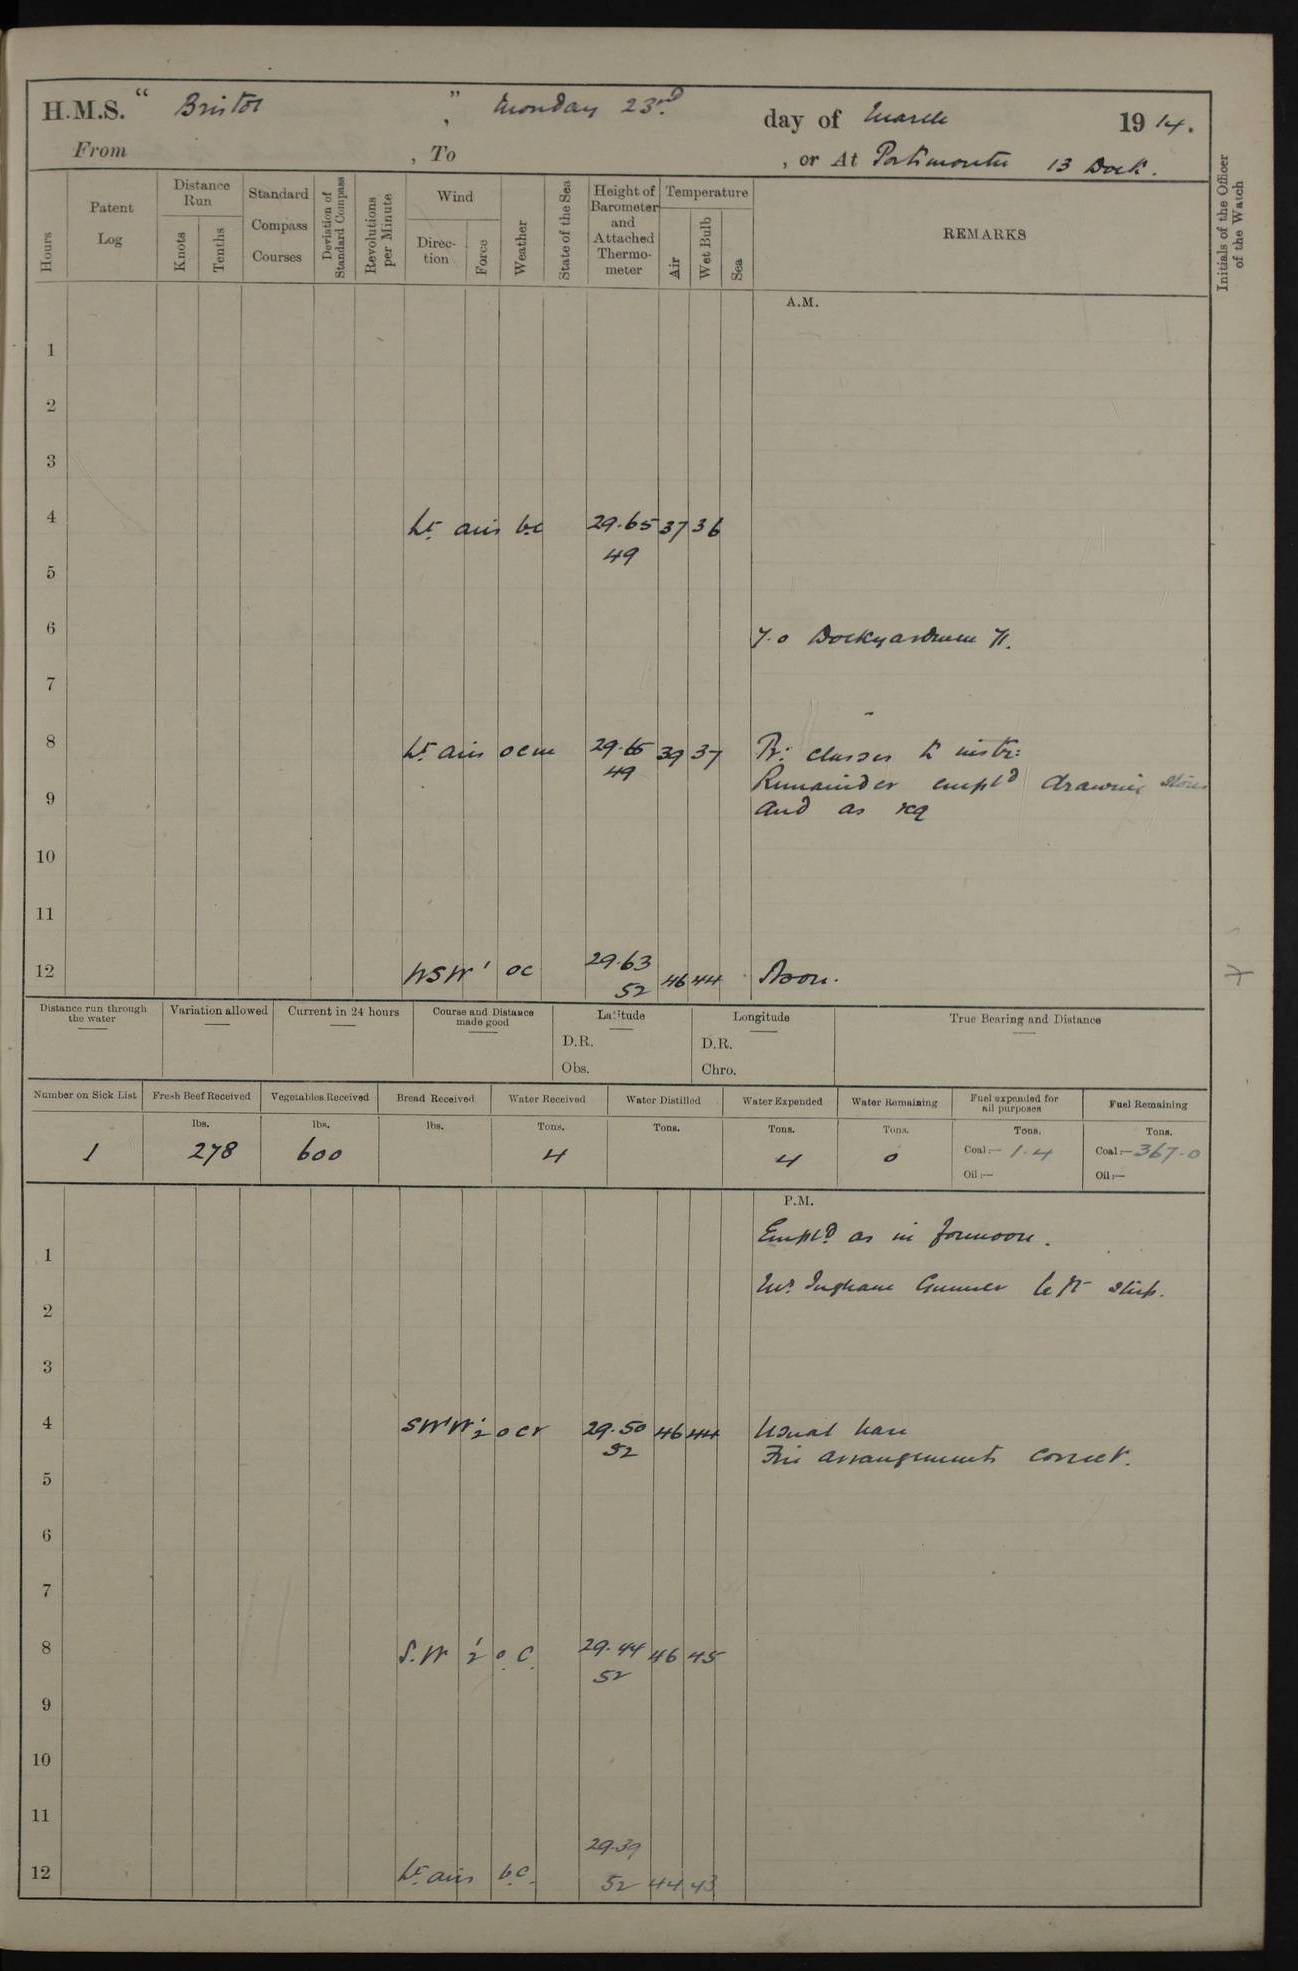 H.M.S. “ Bristol ” , Monday 23rd day of March 1914.
From , To , or At Portsmouth 13 Dock.
Hours
Patent Log
Distance Run
Knots
Tenths
Standard Compass Courses
Deviation of Standard Compass
Revolutions per Minute
Wind
Direc-tion
Force
Weather
State of the Sea
Height of Barometer and Attached Thermo-meter
Temperature
Air
Wet Bulb
Sea
REMARKS
Initials of the Officer of the Watch
A.M.
1
2
3
4 Lt airs bc 29.65 37 36
49
5
6 7.0 Dockyardmen
7
8 Lt airs ocm 29.65 39 37 classes to instr:
49 Remainder empld drawing stores
9 and as req
10
11
12 WSW 1 oc 29.63 46 44 Noon.
52
Distance run through the water
Variation allowed
Current in 24 hours
Course and Distance made good
Latitude
D.R.
Obs.
Longitude
D.R.
Chro.
True Bearing and Distance
Number on Sick List
Fresh Beef Received
Vegetables Received
Bread Received
Water Received
Water Distilled
Water Expended
Water Remaining
Fuel expended for all purposes
Fuel Remaining
lbs. lbs. lbs. Tons. Tons. Tons. Tons. Tons. Tons.
1 278 600 4 4 0 Coal:— 1.4 Coal:— 367.0
Oil:— Oil:—
P.M.
Empld as in forenoon.
1
Mr Ingham Gunner left ship.
2
3
4 SW'W 1-2 ocr 29.50 46 44 Usual leave
52 Fire arrangements correct.
5
6
7
8 S.W 1-2 o.c. 29.44 46 45
52
9
10
11
29.39
12 Lt airs b.c. 52 44 43